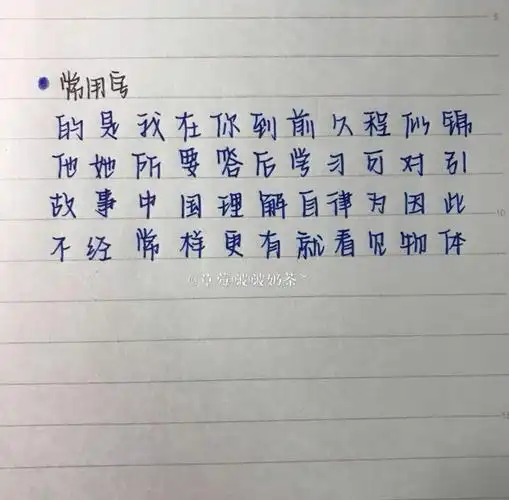 常用字
的是我在你到前久程似锦
他她所要答后学习可对引
故事中国理解自律为因此
不经常样更有就看见物体
@草莓啵啵奶茶~
5
10
15